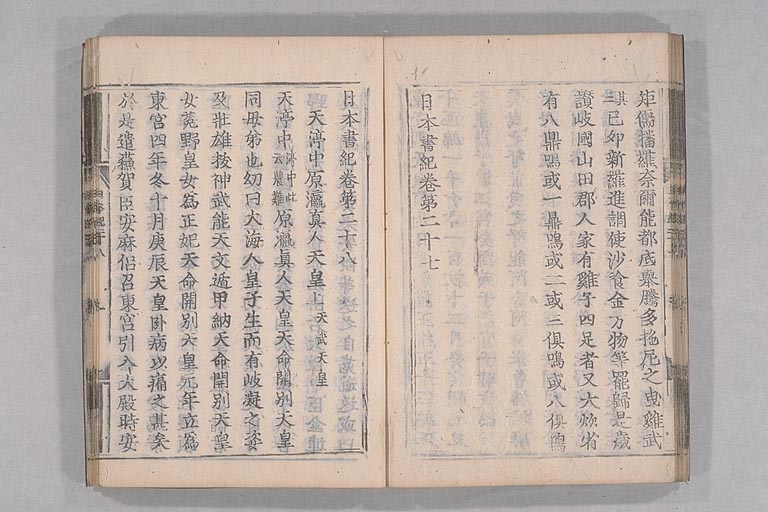 矩儞播羅奈爾能都底擧騰多拖尼之曳雞武
謨己卯新羅進調使沙飡金万物等罷歸是歲
讃岐國山田郡人家有雞子四足者又大炊省
有八鼎鳴或一鼎鳴或二或三俱鳴或八俱鳴
日本書紀卷第二十七
日本書紀卷第二十八
天渟中原瀛真人天皇上天武天皇
天渟中渟中此云農難原瀛眞人天皇天命開別天皇
同母弟也幼曰大海人皇子生而有岐嶷之姿
及壯雄拔神武能天文遁甲納天命開別天皇
女菟野皇女爲正妃天命開別天皇元年立爲
東宮四年冬十月庚辰天皇臥病以痛之甚矣
於是遣蘓賀臣安麻侶召東宮引入大殿時安